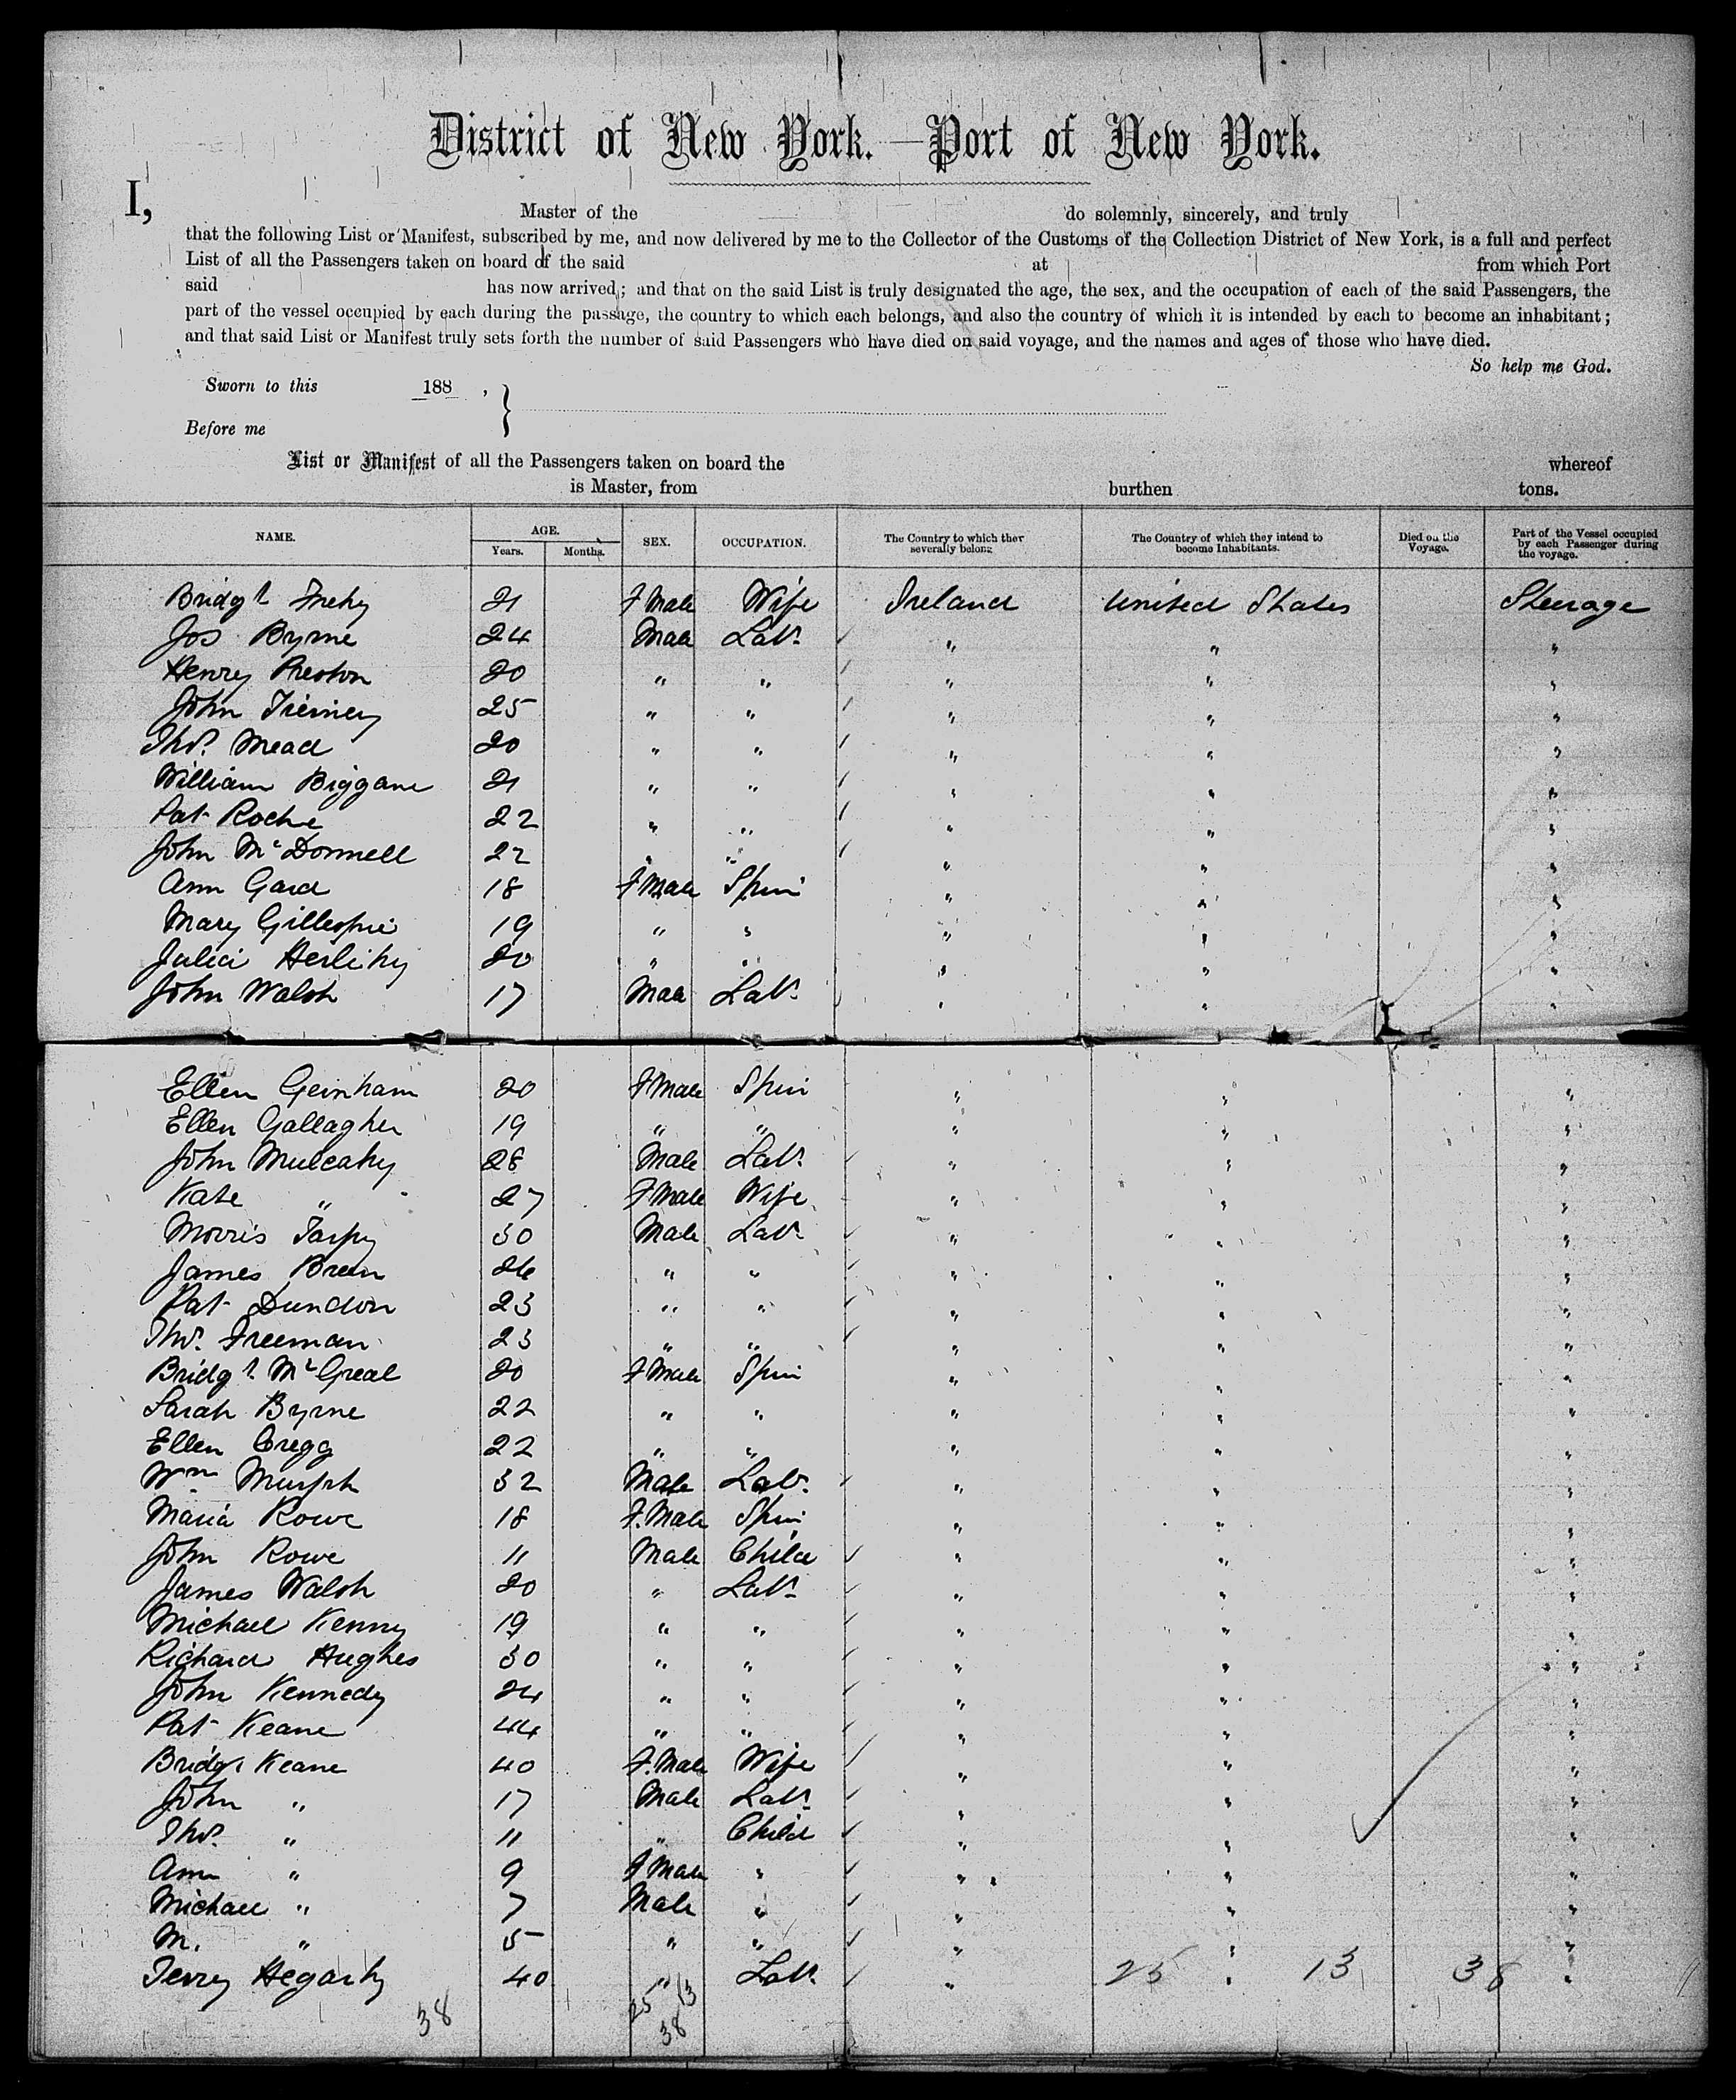 District of New York.—Port of New York.
I, Master of the do solemnly, sincerely, and truly
that the following List or Manifest, subscribed by me, and now delivered by me to the Collector of the Customs of the Collection District of New York, is a full and perfect
List of all the Passengers taken on board of the said at from which Port
said has now arrived; and that on the said List is truly designated the age, the sex, and the occupation of each of the said Passengers, the
part of the vessel occupied by each during the passage, the country to which each belongs, and also the country of which it is intended by each to become an inhabitant;
and that said List or Manifest truly sets forth the number of said Passengers who have died on said voyage, and the names and ages of those who have died.
So help me God.
Sworn to this 188 ,
Before me
List or Manifest of all the Passengers taken on board the whereof
is Master, from burthen tons.
NAME. AGE. Years. Months. SEX. OCCUPATION. The Country to which they severally belong. The Country of which they intend to become Inhabitants. Died on the Voyage. Part of the Vessel occupied by each Passenger during the voyage.
Bridgt 21 F Male Wife Ireland United States Steerage
Jos Byrne 24 Male Labr " " "
Henry Preston 20 " " " " "
John Tierney 25 " " " " "
Thos. Mead 20 " " " " "
William Biggane 21 " " " " "
Pat Roche 22 " " " " "
John McDonnell 22 " " " " "
Ann Gard 18 F Male Spin " " "
Mary Gillespie 19 " " " " "
Julia Herlihy 20 " " " " "
John Walsh 17 Male Labr " " "
Ellen 20 F Male Spin " " "
Ellen Gallagher 19 " " " " "
John Mulcahy 28 Male Labr " " "
Kate " 27 F Male Wife " " "
Morris Tarpy 30 Male Labr " " "
James Breen 26 " " " " "
Pat Dundon 23 " " " " "
Thos. Freeman 23 " " " " "
Bridgt McGreal 20 F Male Spin " " "
Sarah Byrne 22 " " " " "
Ellen Cregg 22 " " " " "
Wm Murph 32 Male Labr " " "
Maria Rowe 18 F. Male Spin " " "
John Rowe 11 Male Child " " "
James Walsh 20 " Labr " " "
Michael Kenny 19 " " " " "
Richard Hughes 30 " " " " "
John Kennedy 24 " " " " "
Pat Keane 44 " " " " "
Bridgt Keane 40 F. Male Wife " " "
John " 17 Male Labr " " "
Thos. " 11 " Child " " "
Ann " 9 F Male " " " "
Michael " 7 Male " " " "
M. " 5 " " " " "
Terry Hegarty 40 " Labr " 25 " 13 38 "
38 25 13
38